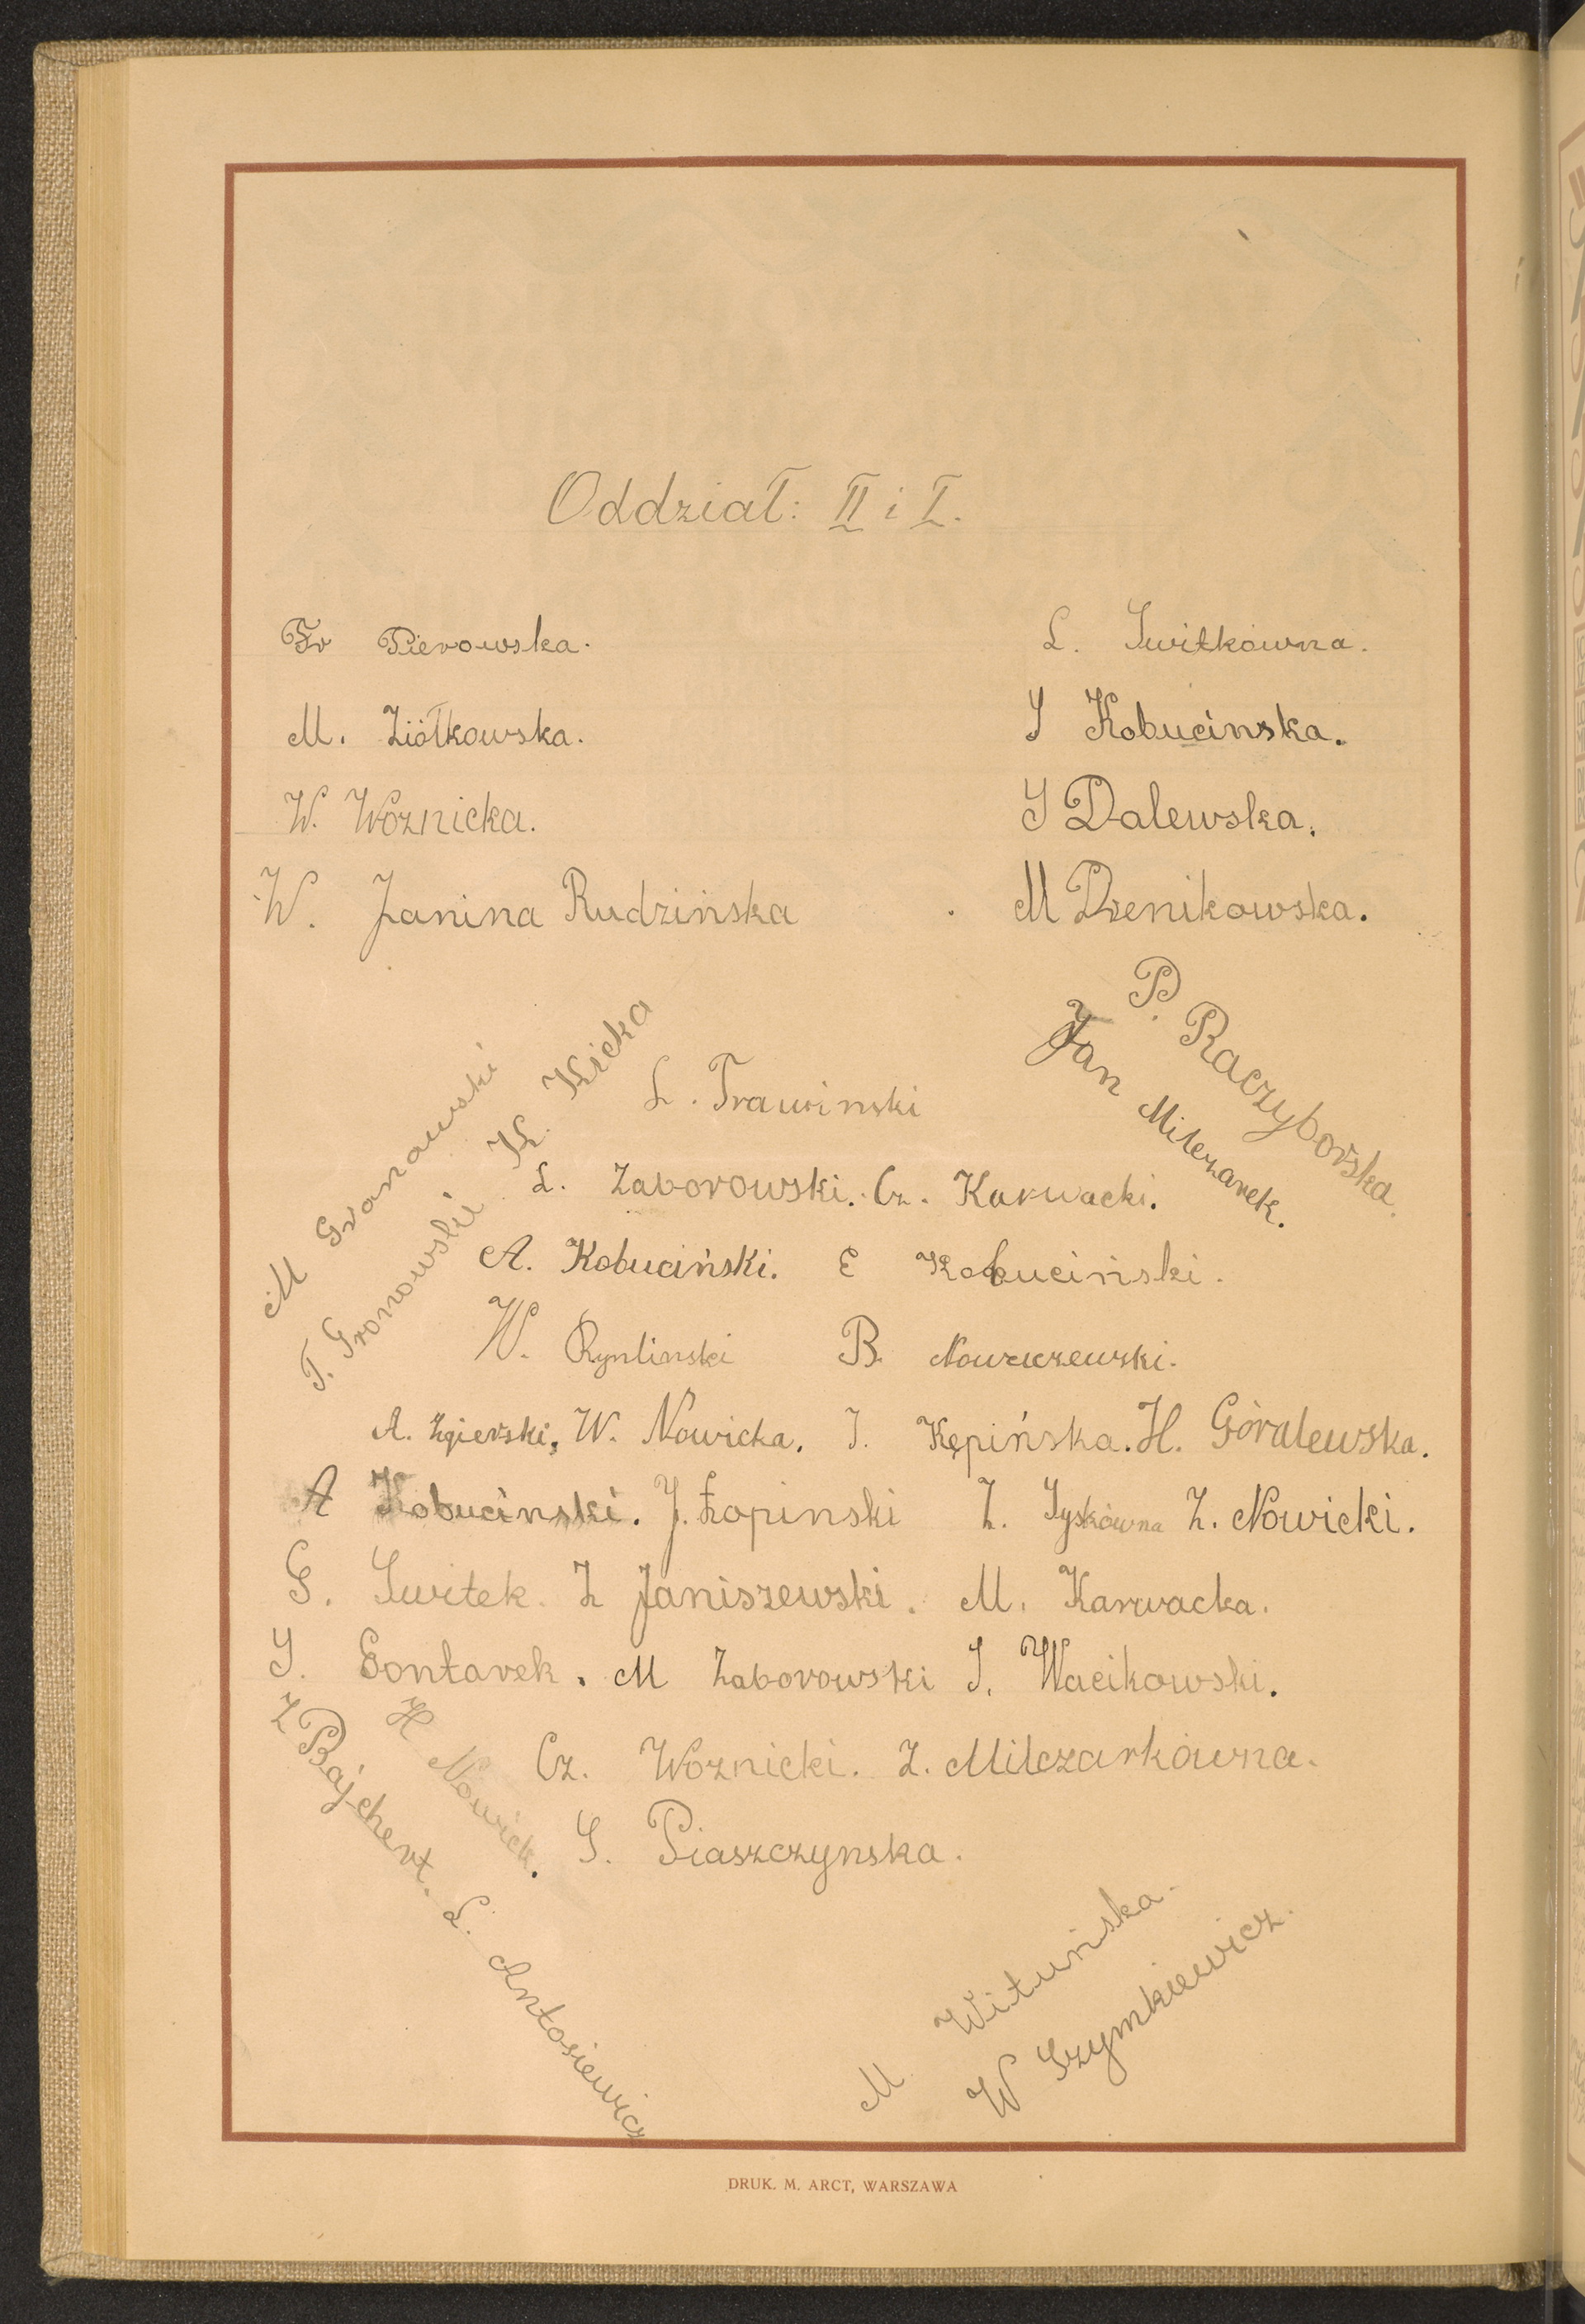 Oddział: II i I.
Fr Pierowska.
L. Switkówna.
M. Ziółkowska.
S Kobucinska.
W. Woznicka.
S Dalewska.
W. Janina Rudzińska
M Dzenikowska.
P. Raczyborska.
Jan Milczarek.
M Gronowski
T. Gronowski
K. Kicka
L. Trawinski
L. Zaborowski. Cz. Karwacki.
A. Kobuciński. E Kobuciński.
W. Rynlinski B. Nowaczewski.
A. Zgierski, W. Nowicka. J. Kępińska. H. Góralewska.
A Kobucinski. J. Łopinski Z. Syskówna Z. Nowicki.
G. Switek. Z Janiszewski. M. Karwacka.
S. Gontarek. M Zaborowski J. Wacikowski.
Z Bajchert. L. Antosiewicz
H Nowick.
Cz. Woznicki. Z. Milczarkówna.
S. Piaszczynska.
M. Wituńska.
W Szymkiewicz.
DRUK. M. ARCT, WARSZAWA